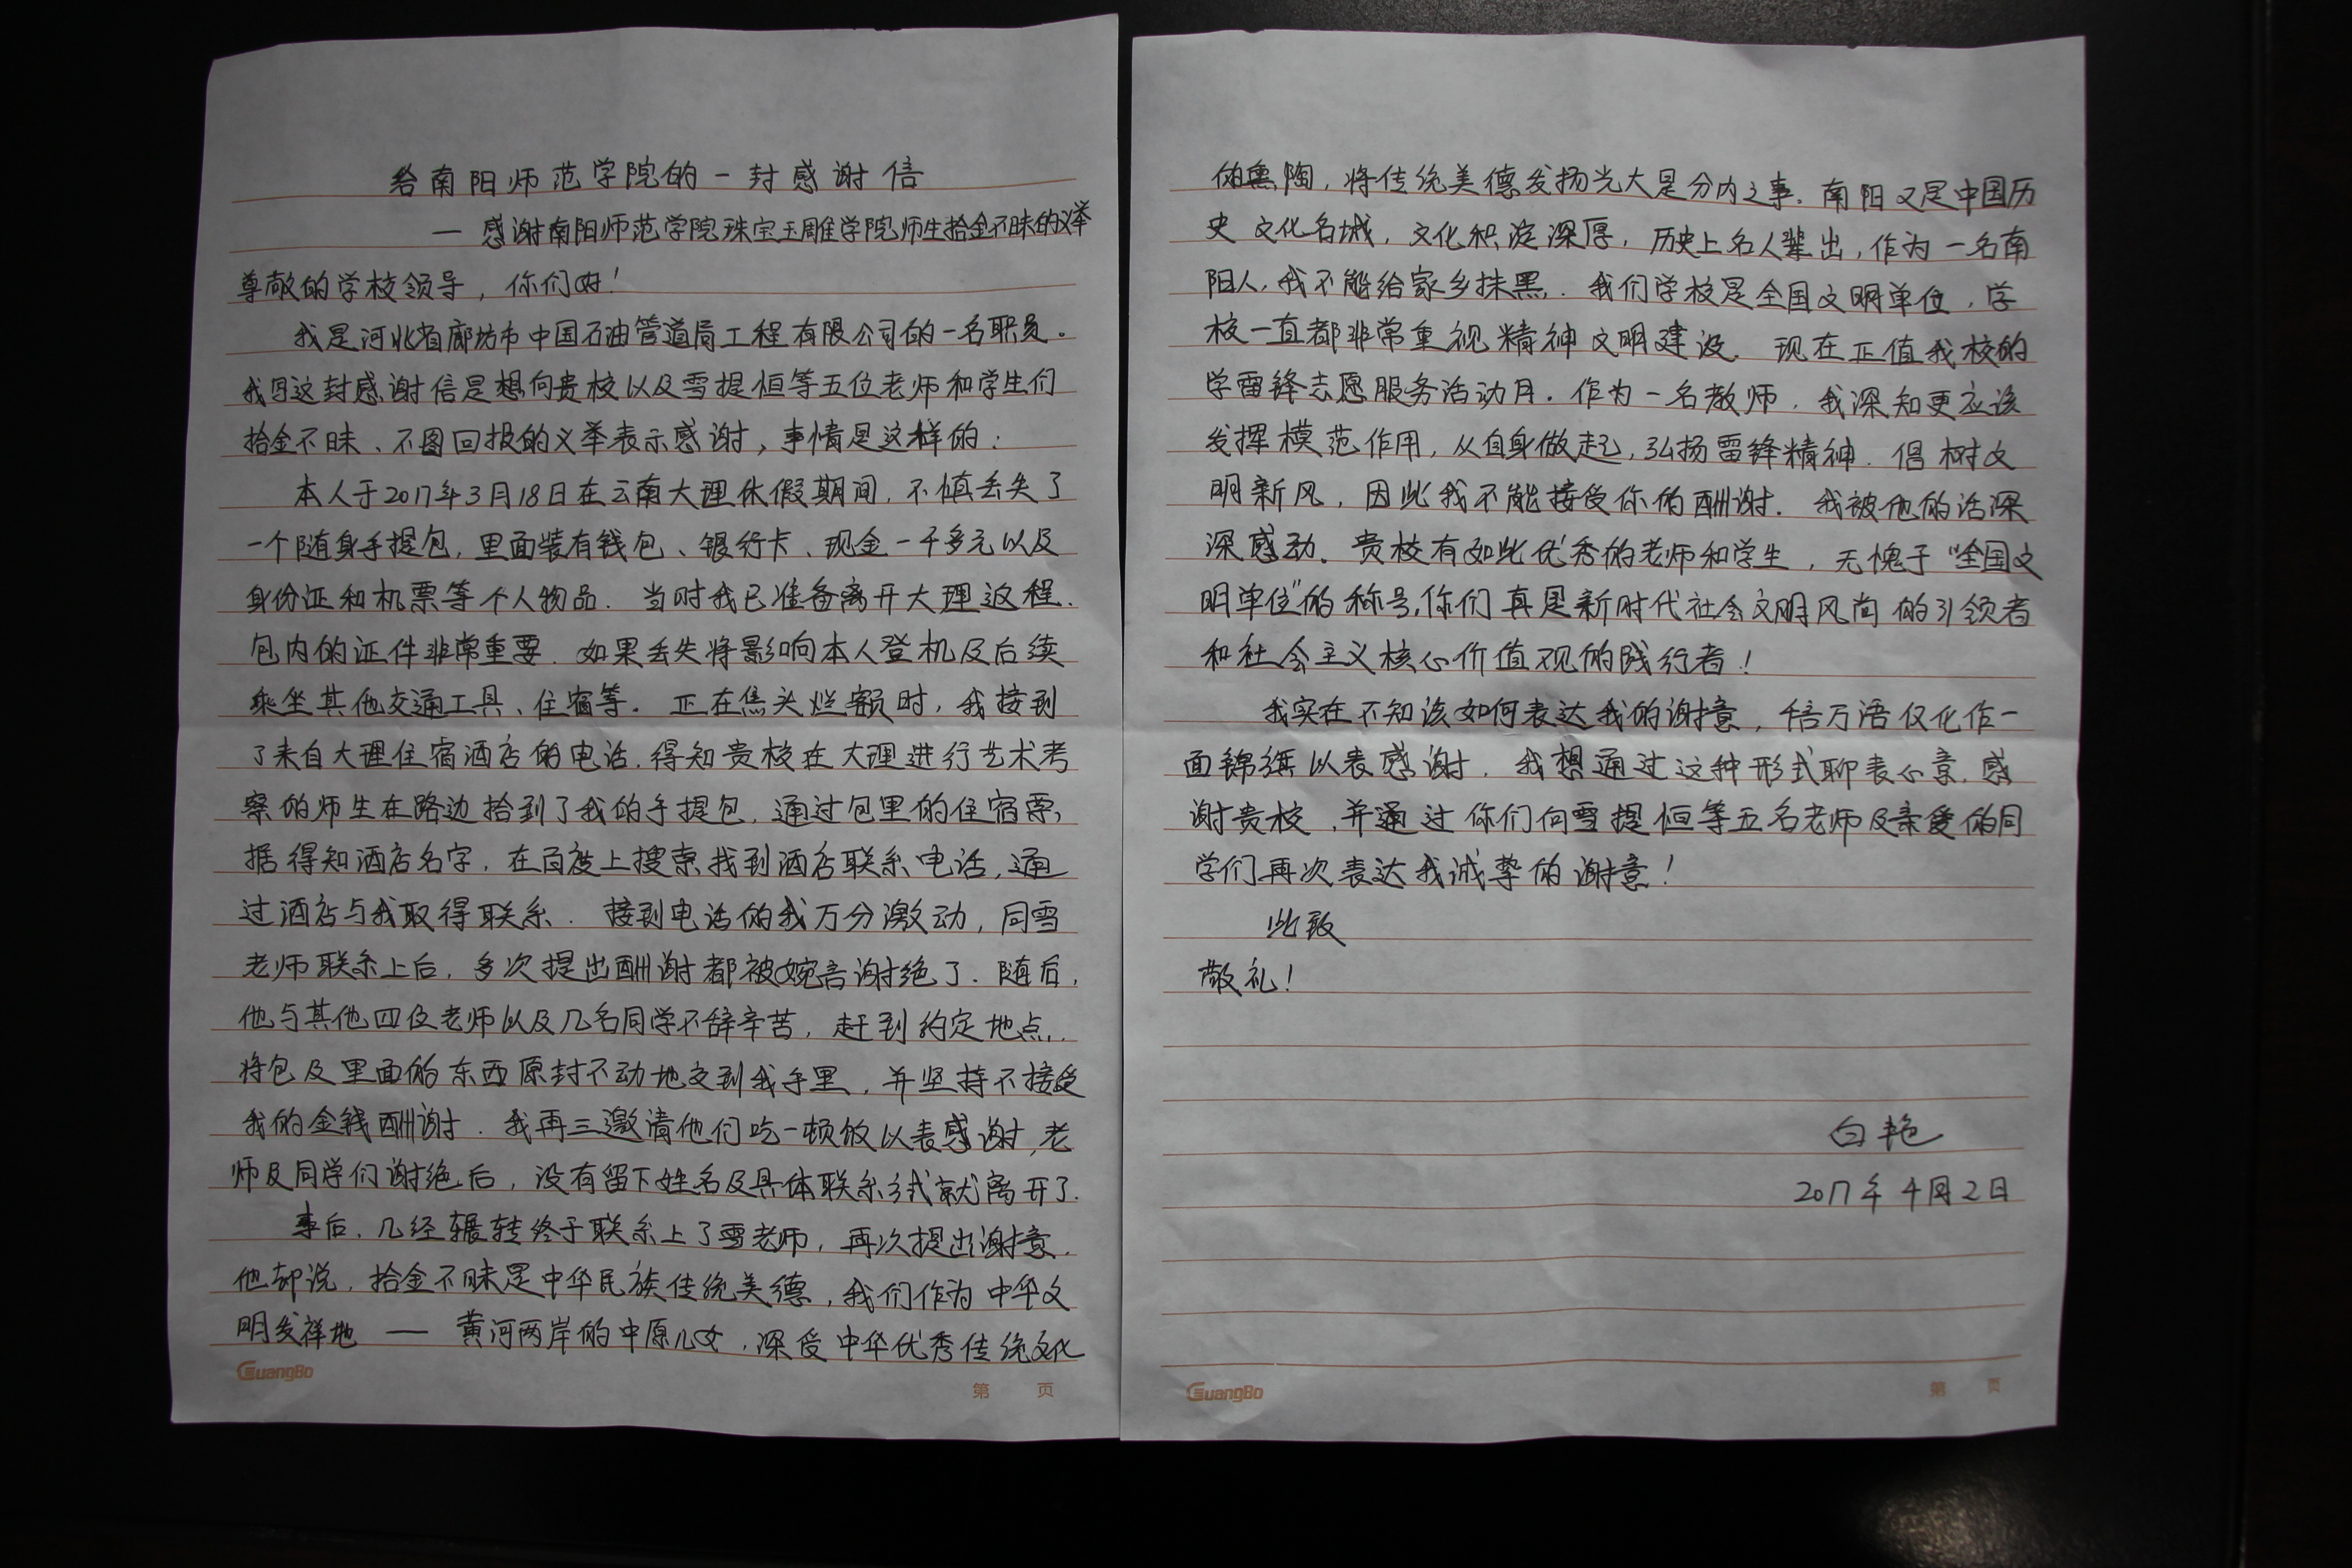 给南阳师范学院的一封感谢信
— 感谢南阳师范学院珠宝玉雕学院师生拾金不昧的义举
尊敬的学校领导，你们好！
我是河北省廊坊市中国石油管道局工程有限公司的一名职员。
我写这封感谢信是想向贵校以及雪提恒等五位老师和学生们
拾金不昧、不图回报的义举表示感谢，事情是这样的：
本人于2017年3月18日在云南大理休假期间，不慎丢失了
一个随身手提包，里面装有钱包、银行卡、现金一千多元以及
身份证和机票等个人物品．当时我已准备离开大理返程．
包内的证件非常重要．如果丢失将影响本人登机及后续
乘坐其他交通工具、住宿等．正在焦头烂额时，我接到
了来自大理住宿酒店的电话．得知贵校在大理进行艺术考
察的师生在路边拾到了我的手提包．通过包里的住宿票
据得知酒店名字，在百度上搜索找到酒店联系电话，通
过酒店与我取得联系．接到电话的我万分激动，同雪
老师联系上后，多次提出酬谢都被婉言谢绝了．随后，
他与其他四位老师以及几名同学不辞辛苦，赶到约定地点．
将包及里面的东西原封不动地交到我手里，并坚持不接受
我的金钱酬谢．我再三邀请他们吃一顿饭以表感谢，老
师及同学们谢绝后，没有留下姓名及具体联系方式就离开了．
事后，几经辗转终于联系上了雪老师，再次提出谢意．
他却说，拾金不昧是中华民族传统美德，我们作为中华文
明发祥地 — 黄河两岸的中原儿女，深受中华优秀传统文化
GuangBo
第 页
的熏陶，将传统美德发扬光大是分内之事．南阳又是中国历
史文化名城，文化积淀深厚，历史上名人辈出，作为一名南
阳人，我不能给家乡抹黑．我们学校是全国文明单位，学
校一直都非常重视精神文明建设．现在正值我校的
学雷锋志愿服务活动月．作为一名教师，我深知更应该
发挥模范作用，从自身做起，弘扬雷锋精神．倡树文
明新风，因此我不能接受你的酬谢．我被他的话深
深感动．贵校有如此优秀的老师和学生，无愧于“全国文
明单位”的称号，你们真是新时代社会文明风尚的引领者
和社会主义核心价值观的践行者！
我实在不知该如何表达我的谢意，千言万语仅化作一
面锦旗以表感谢．我想通过这种形式聊表心意．感
谢贵校，并通过你们向雪提恒等五名老师及亲爱的同
学们再次表达我诚挚的谢意！
此致
敬礼！
白艳
2017年4月2日
GuangBo
第 页